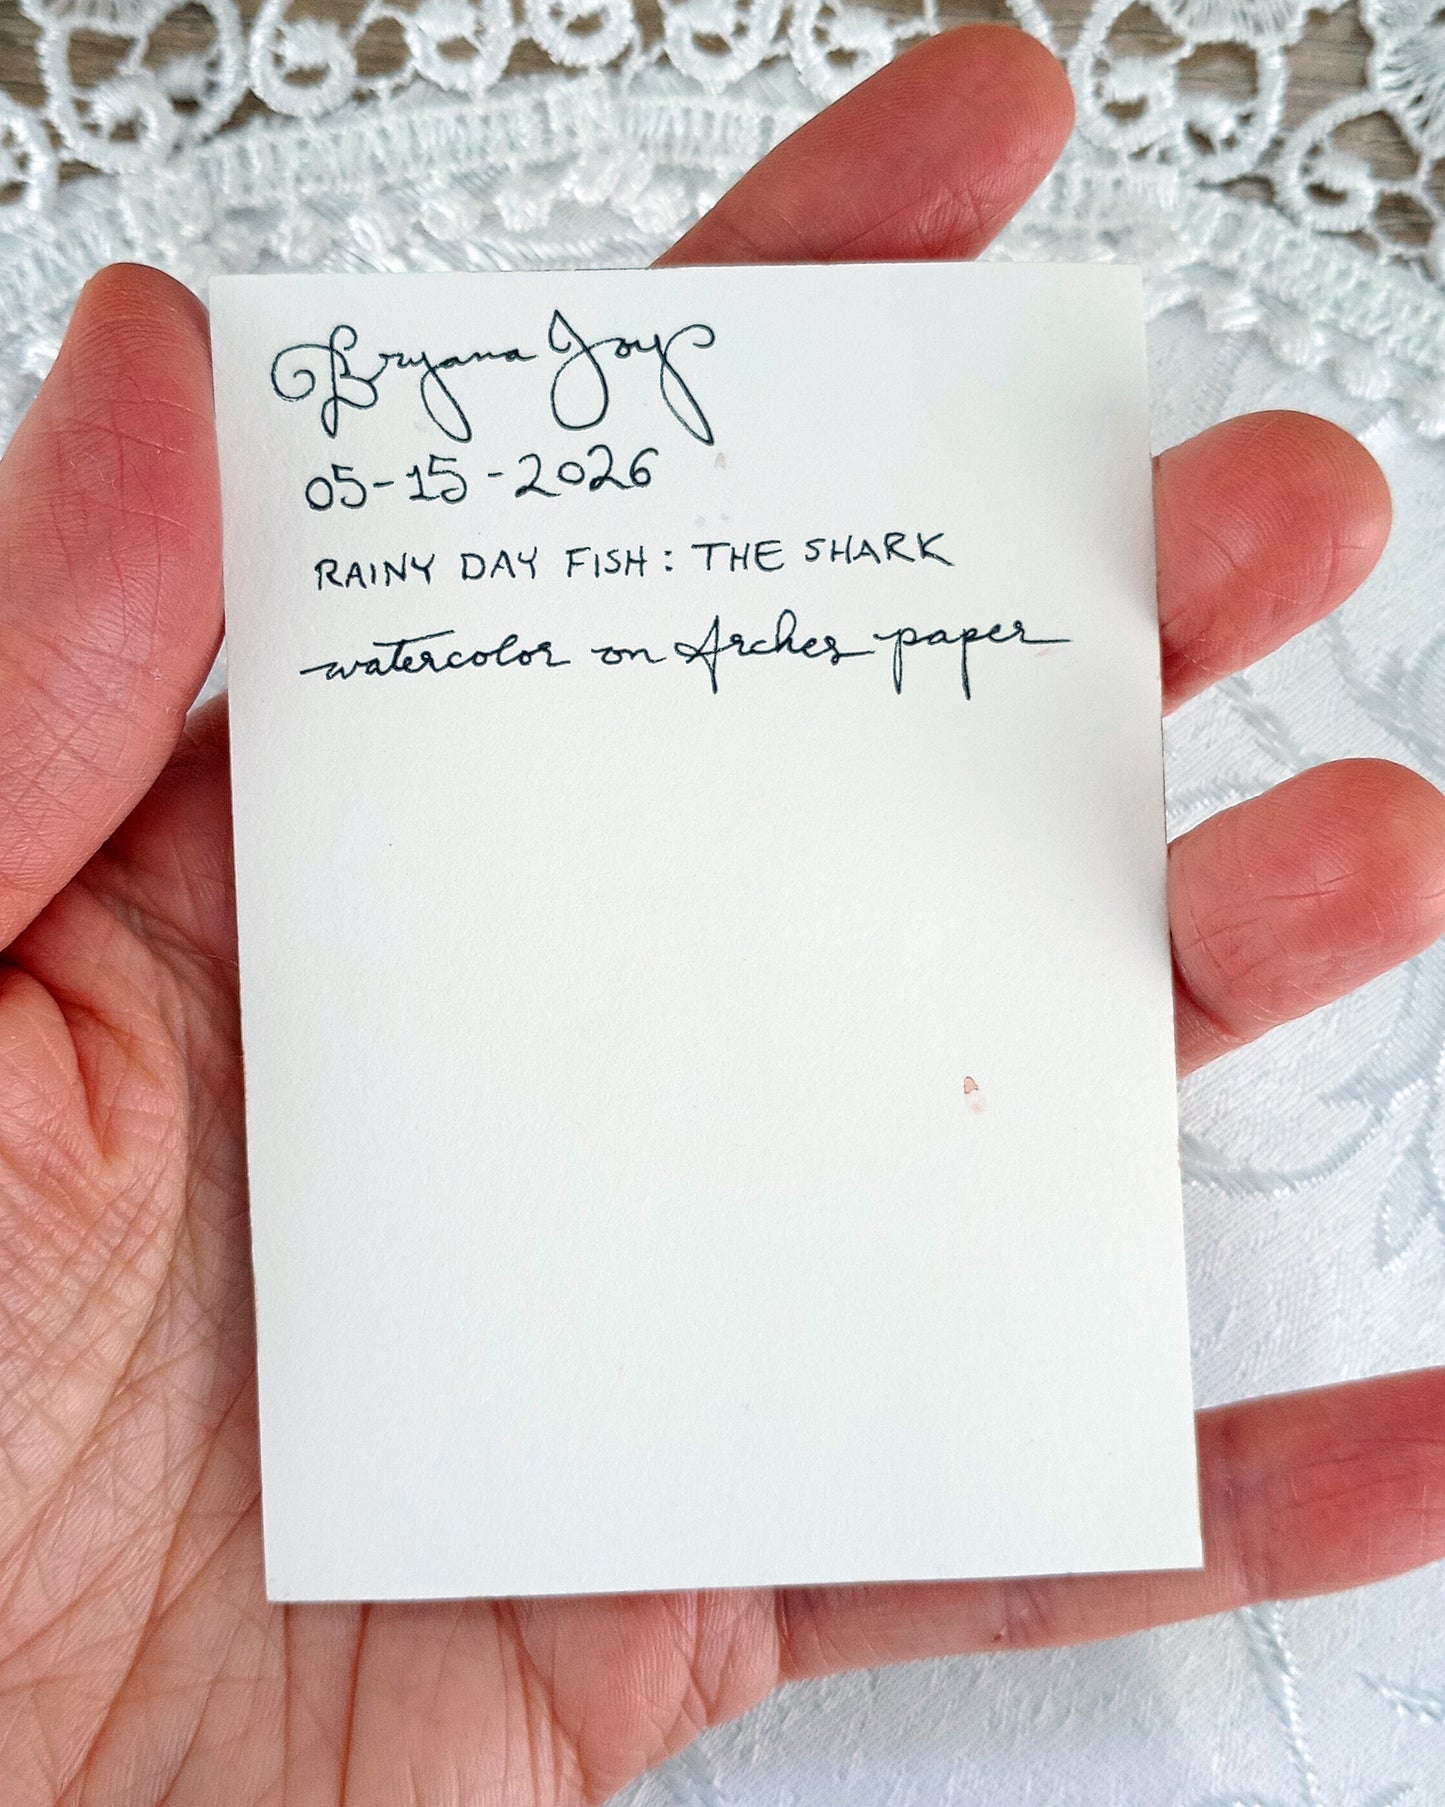 Bryana Joy
05-15-2026
RAINY DAY FISH: THE SHARK
watercolor on Arches paper